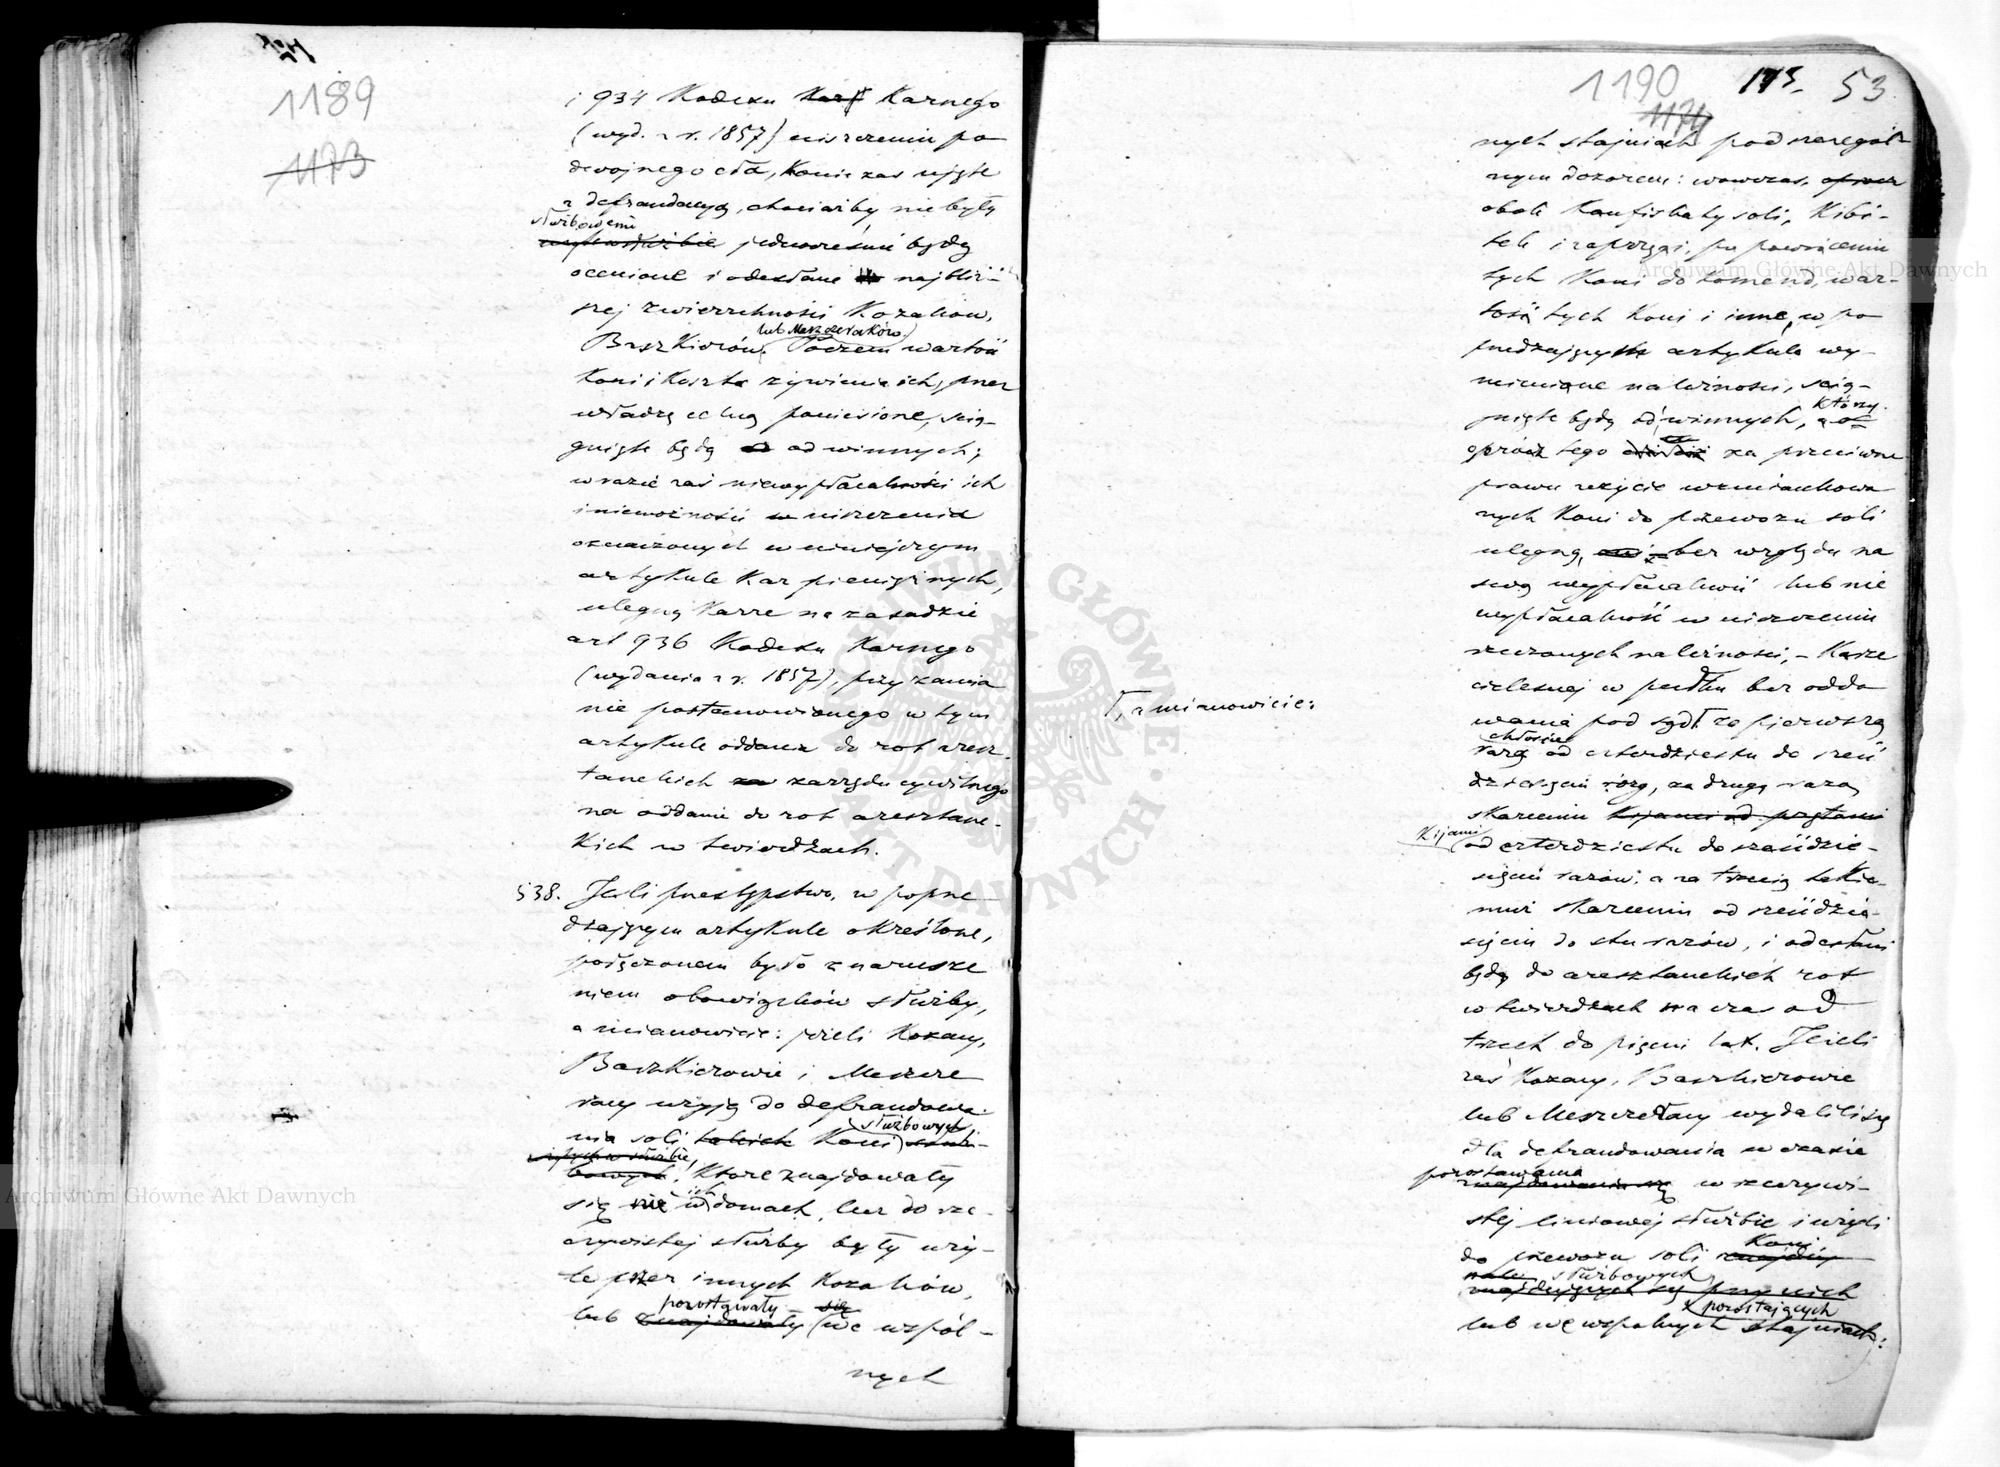 1189
1173
i 934 Kodexu Karnego
(wyd. z r. 1857) uiszczeniu po
dwojnego cła, Konie zaś ujęte
z defraudacyą, chociażby nie były
służbowemi
jednocześnie będą
ocenione i odesłane najbliż-
szej zwierzchności Kozaków,
lub Meszczeraków.
Baszkirów. Poczem wartość
koni i koszta żywienia ich, przez
władzę celną poniesione, ścią-
gnięte będą od winnych;
w razie zaś niewypłacalności ich
i niemożności uiszczenia
oznaczonych w niniejszym
artykule Kar pieniężnych,
ulegną Karze na zasadzie
art 936 Kodexu Karnego
(wydania z r. 1857), przy zamia
nie postanowionego w tym
artykule oddania do rot aresz-
tanckich zarządu cywilnego
na oddanie do rot aresztanc-
kich w twierdzach.
538. Jeśli przestępstwo, w poprze
dzającym artykule określone,
połączonem było z narusze
niem obowiązków służby,
a mianowicie: jeżeli Kozacy,
Baszkirowie i Meszcze
racy użyją do defraudowa-
służbowych
nia soli takich Koni
użytych w służbie,
bowych, które znajdowały
się nie w domach, lecz do rze-
czywistej służby były uży-
te przez innych Kozaków,
pozostawały się
lub znajdowały we wspól-
nych
1190 175. 53
1174
nych stajniach pod szczegól
nym dozorem: wówczas,
obok Konfiskaty soli, Kibi-
tek i zaprzęgi, po powróceniu
tych Koni do komend, war-
tość tych Koni i inne, w po
przedzającym artykule wy-
mienione należności, ścią-
którzy
gnięte będą od winnych,
oprócz tego za przeciwne
prawu użycie wzmiankowa
nych Koni do przewozu soli
ulegną, bez względu na
swą wypłacalność lub nie
wypłacalność w uiszczeniu
rzeczonych należności, - Karze
cielesnej w pułku bez odda
Γ, a mianowicie:
wania pod sąd: za pierwszą
chłoscie
razą od czterdziestu do sześć
dziesięciu rózg, za drugą razą
skarceniu kijami od
Kijami
od czterdziestu do sześćdzie-
sięciu razów; a za trzecią takie-
muż skarceniu od sześćdzie-
sięciu do stu razów, i odesłani
będą do aresztanckich rot
w twierdzach na czas od
trzech do pięciu lat. Jeżeli
zaś Kozacy, Baszkirowie
lub Meszczeracy wydalili się
dla defraudowania w czasie
pozostawania
znajdowania się w rzeczywi-
stej liniowej służbie i użyli
Koni
do przewozu soli
służbowych
znajdujących się przy nich
pozostających
lub we wspólnych stajniach: